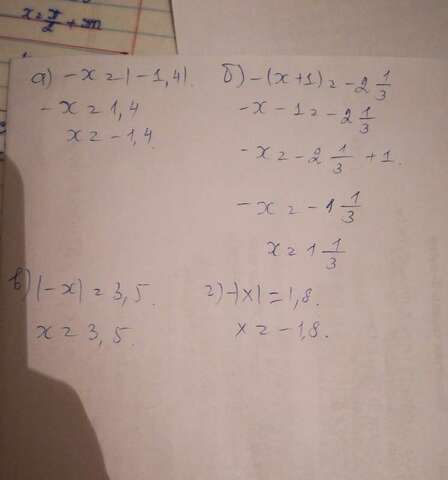 x = π/2 + πn
а) -x = |-1,4|.
-x = 1,4
x = -1,4.
б) -(x+1) = -2 1/3
-x - 1 = -2 1/3
-x = -2 1/3 + 1.
-x = -1 1/3
x = 1 1/3
в) |-x| = 3,5.
x = 3,5.
г) -|x| = 1,8.
x = -1,8.